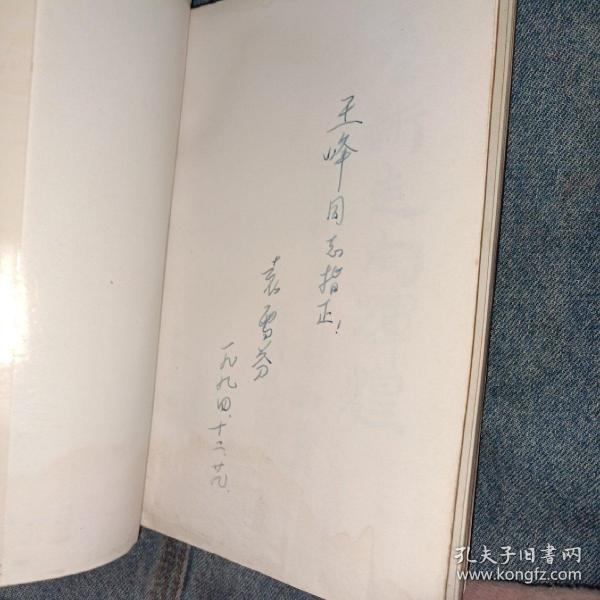 王峰同志指正！
袁雪芬
一九九四.十二.廿九.
孔夫子旧书网
www.kongfz.com